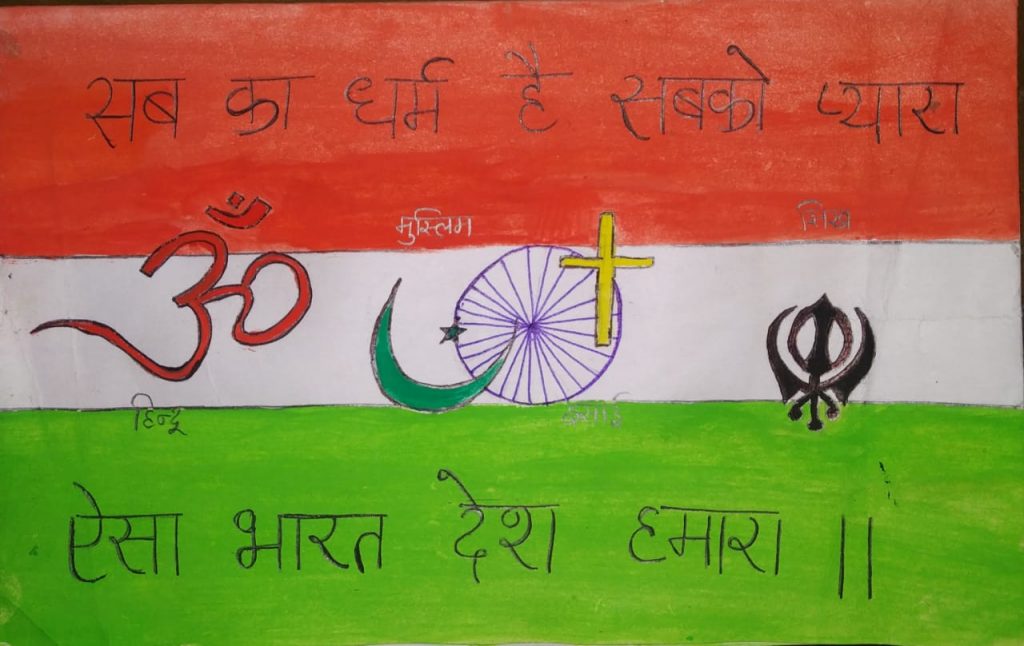 सब का धर्म है सबको प्यारा
मुस्लिम
शिख
हिन्दू
ईसाई
ऐसा भारत देश हमारा ||